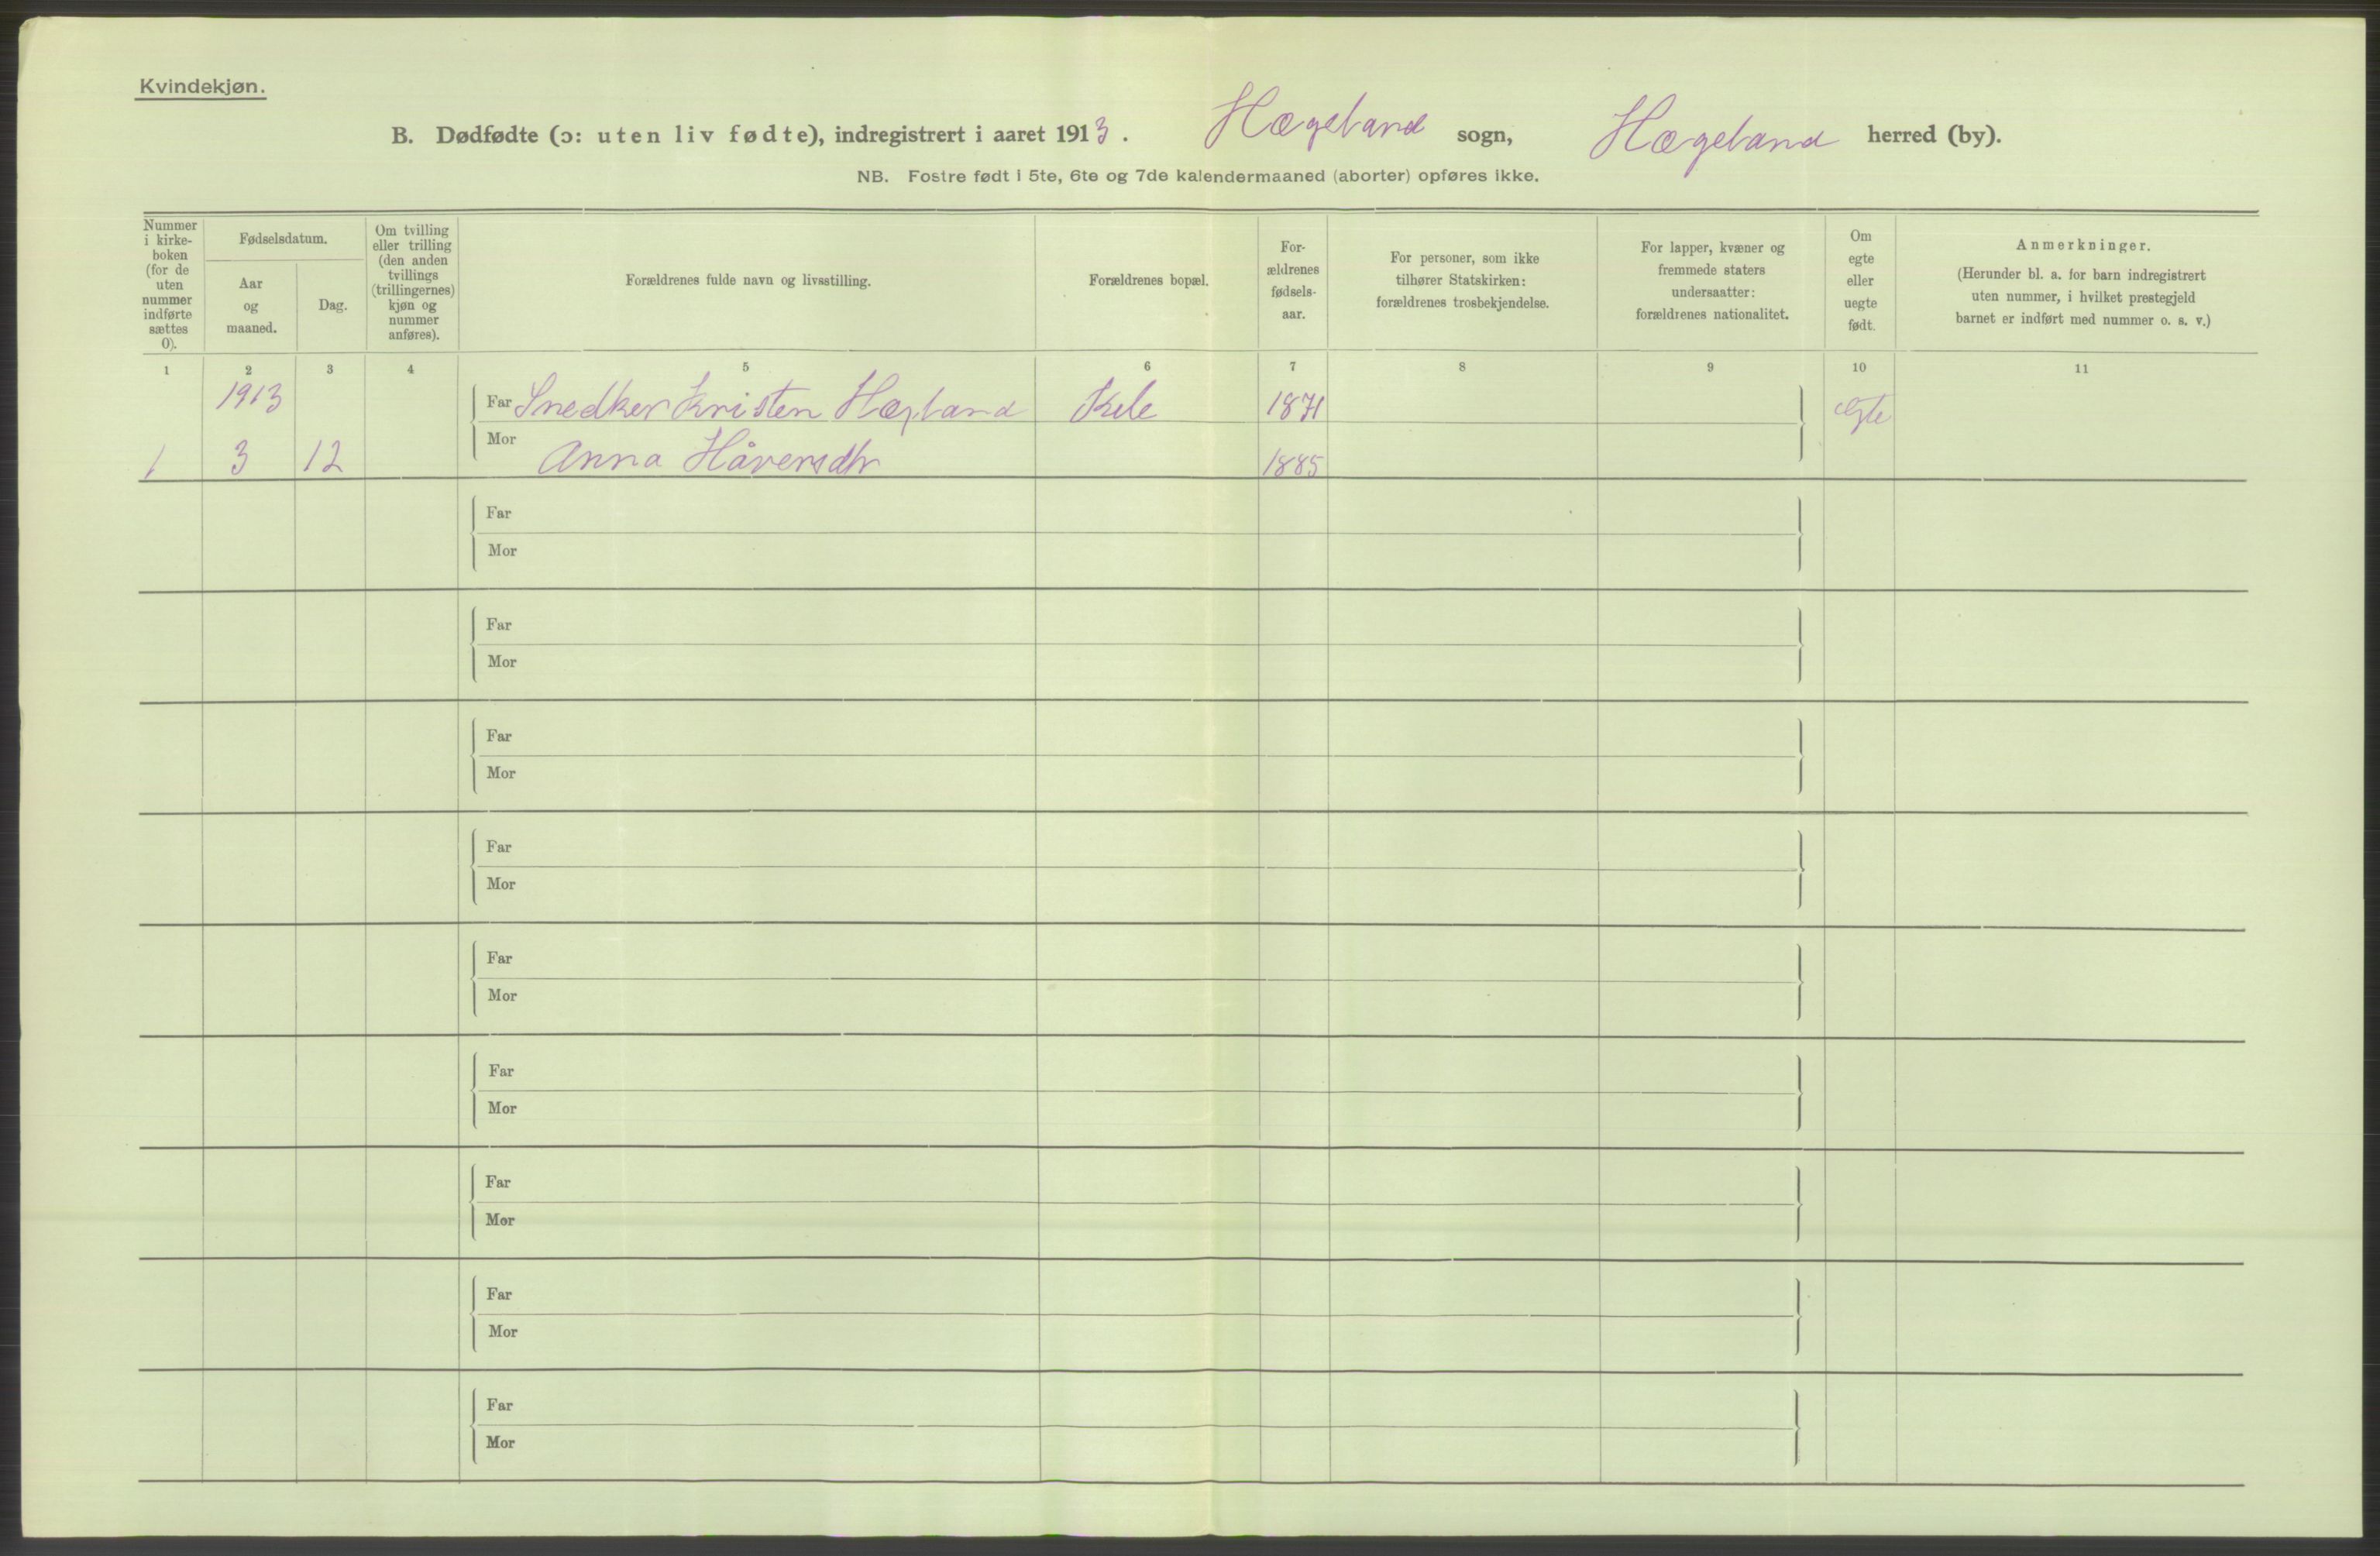 Kvindekjøn.
B. Dødfødte (ɔ: uten liv fødte), indregistrert i aaret 1913. Hægeland sogn, Hægeland herred (by).
NB. Fostre født i 5te, 6te og 7de kalendermaaned (aborter) opføres ikke.
Nummer
i kirke-
boken
(for de
uten
nummer
indførte
sættes
0).
Fødselsdatum.
Aar
og
maaned.
Dag.
Om tvilling
eller trilling
(den anden
tvillings
(trillingernes)
kjøn og
nummer
anføres).
Forældrenes fulde navn og livsstilling.
Forældrenes bopæl.
For-
ældrenes
fødsels-
aar.
For personer, som ikke
tilhører Statskirken:
forældrenes trosbekjendelse.
For lapper, kvæner og
fremmede staters
undersaatter:
forældrenes nationalitet.
Om
egte
eller
uegte
født.
Anmerkninger.
(Herunder bl. a. for barn indregistrert
uten nummer, i hvilket prestegjeld
barnet er indført med nummer o. s. v.)
1 2 3 4 5 6 7 8 9 10 11
1913 Far Snedker Kristen Hægland Kile 1871 egte
1 3 12 Mor Anna Håversdtr 1885
Far
Mor
Far
Mor
Far
Mor
Far
Mor
Far
Mor
Far
Mor
Far
Mor
Far
Mor
Far
Mor